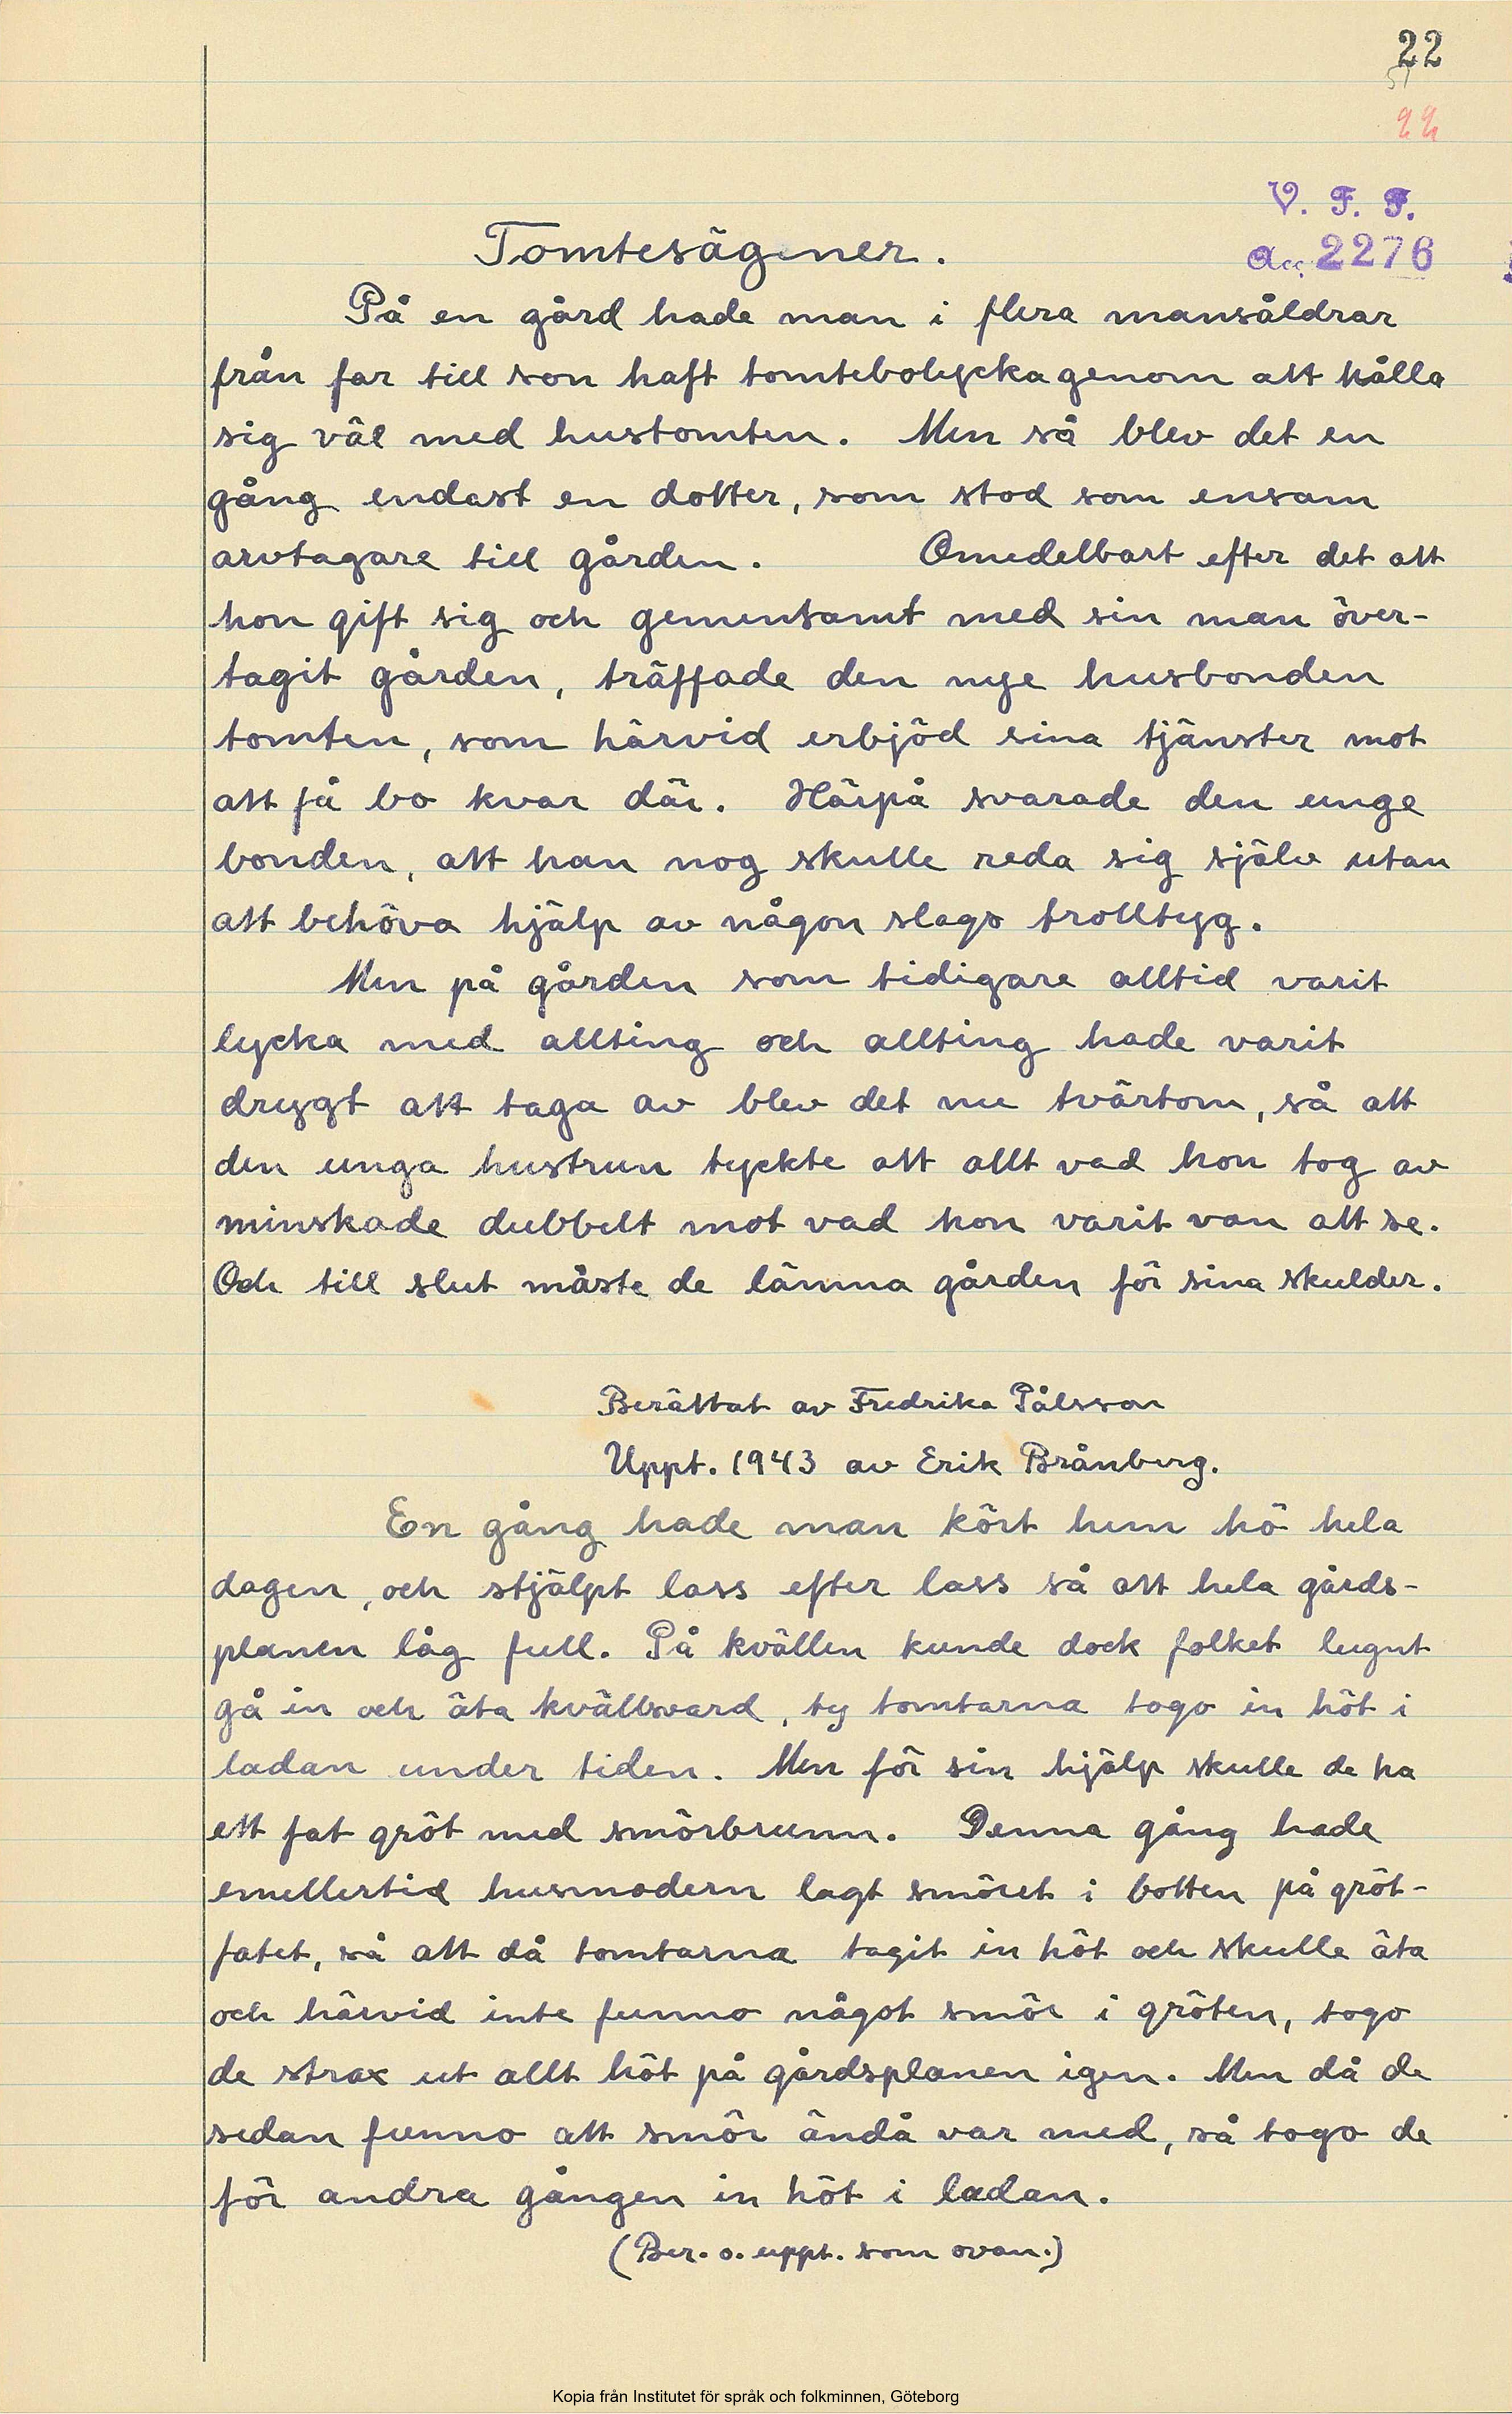 22
51
22
V. F. F.
Acc. 2276
Tomtesägner.
På en gård hade man i flera mansåldrar
från far till son haft tomtebolycka genom att hålla
sig väl med hustomten. Men så blev det en
gång endast en dotter, som stod som ensam
arvtagare till gården. Omedelbart efter det att
hon gift sig och gemensamt med sin man över-
tagit gården, träffade den nye husbonden
tomten, som härvid erbjöd sina tjänster mot
att få bo kvar där. Härpå svarade den unge
bonden, att han nog skulle reda sig själv utan
att behöva hjälp av någon slags trolltyg.
Men på gården som tidigare alltid varit
lycka med allting och allting hade varit
drygt att taga av blev det nu tvärtom, så att
den unga hustrun tyckte att allt vad hon tog av
minskade dubbelt mot vad hon varit van att se.
Och till slut måste de lämna gården för sina skulder.
Berättat av Fredrika Pålsson
Uppt. 1943 av Erik Brånberg.
En gång hade man kört hem hö hela
dagen, och stjälpt lass efter lass så att hela gårds-
planen låg full. På kvällen kunde dock folket lugnt
gå in och äta kvällsvard, ty tomtarna togo in höt i
ladan under tiden. Men för sin hjälp skulle de ha
ett fat gröt med smörbrunn. Denna gång hade
emellertid husmodern lagt smöret i botten på gröt-
fatet, så att då tomtarna tagit in höt och skulle äta
och härvid inte funno något smör i gröten, togo
de strax ut allt höt på gårdsplanen igen. Men då de
sedan funno att smör ändå var med, så togo de
för andra gången in höt i ladan.
(Ber. o. uppt. som ovan.)
Kopia från Institutet för språk och folkminnen, Göteborg